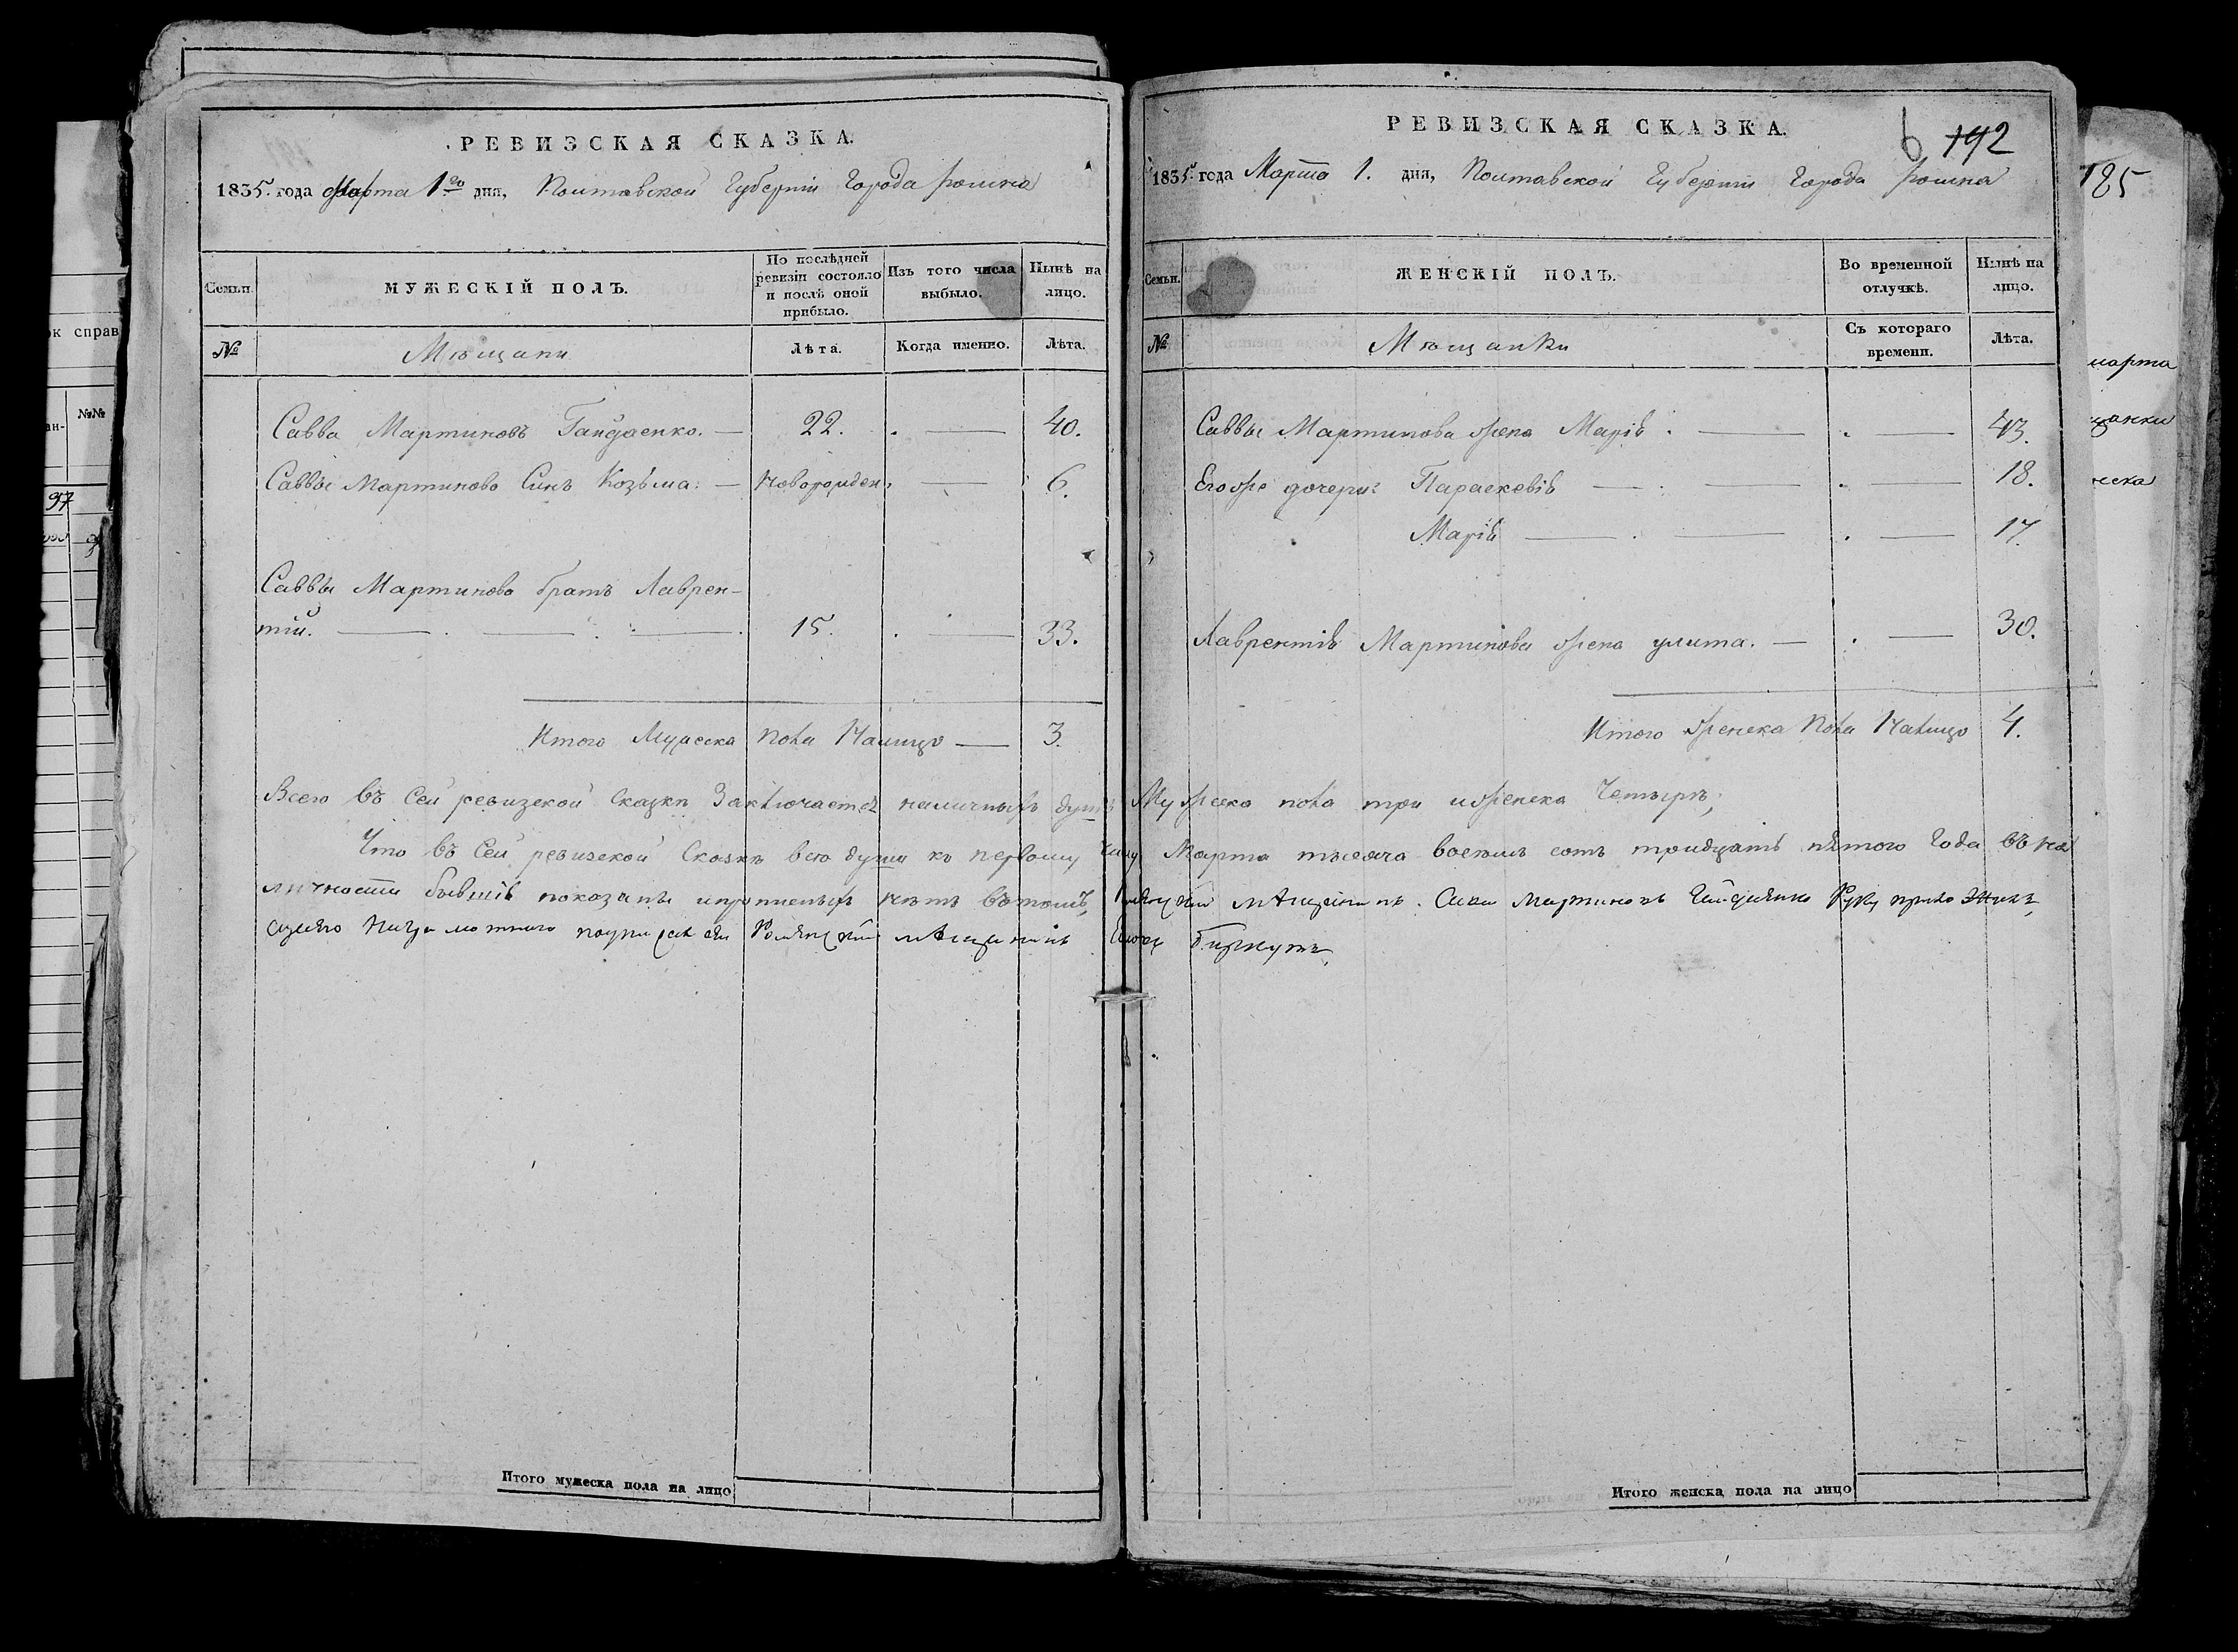 РЕВИЗСКАЯ СКАЗКА.
1835. года Марта 1го дня, Полтавской Губернии Города Ромна
Семьи.
МУЖЕСКІЙ ПОЛЪ.
По послѣдней ревизіи состояло и послѣ оной прибыло.
Изъ того числа выбыло.
Нынѣ на лицо.
№
Мѣщани
Лѣта.
Когда именно.
Лѣта.
Савва Мартиновъ Гайдаенко. — 22. — 40.
Саввы Мартинова Синъ Козьма. — Новорожден. — 6.
Саввы Мартинова братъ Лаврен-
тій. — 15. — 33.
Итого Мужеска пола Налицо — 3.
РЕВИЗСКАЯ СКАЗКА.
6 192
1835. года Марта 1. дня, Полтавской Губернии Города Ромна
Семьи.
ЖЕНСКІЙ ПОЛЪ.
Во временной отлучкѣ.
Нынѣ на лицо.
№
Мѣщанки
Съ котораго времени.
Лѣта.
Саввы Мартинова жена Марія. — 43.
Его же дочери: Параскевія — 18.
Марія — 17.
Лаврентія Мартинова жена улита. — 30.
Итого женска пола Налицо 4.
Всего въ Сей ревизской Сказки Заключается наличныхъ душъ Мужеска пола три и женска Четыре;
Что въ Сей ревизской Сказкѣ все души къ первому числу Марта тысяча восемь сотъ тридцать пятого Года въ на
личности бывшія показаны и прописныхъ нетъ въ томъ, мѣщанинъ Сава Мартиновъ Гайдаенко Руку приложилъ,
а него неграмотного мѣщанинъ
Итого мужеска пола на лицо
Итого женска пола на лицо
185
марта
ок справ
№№
97